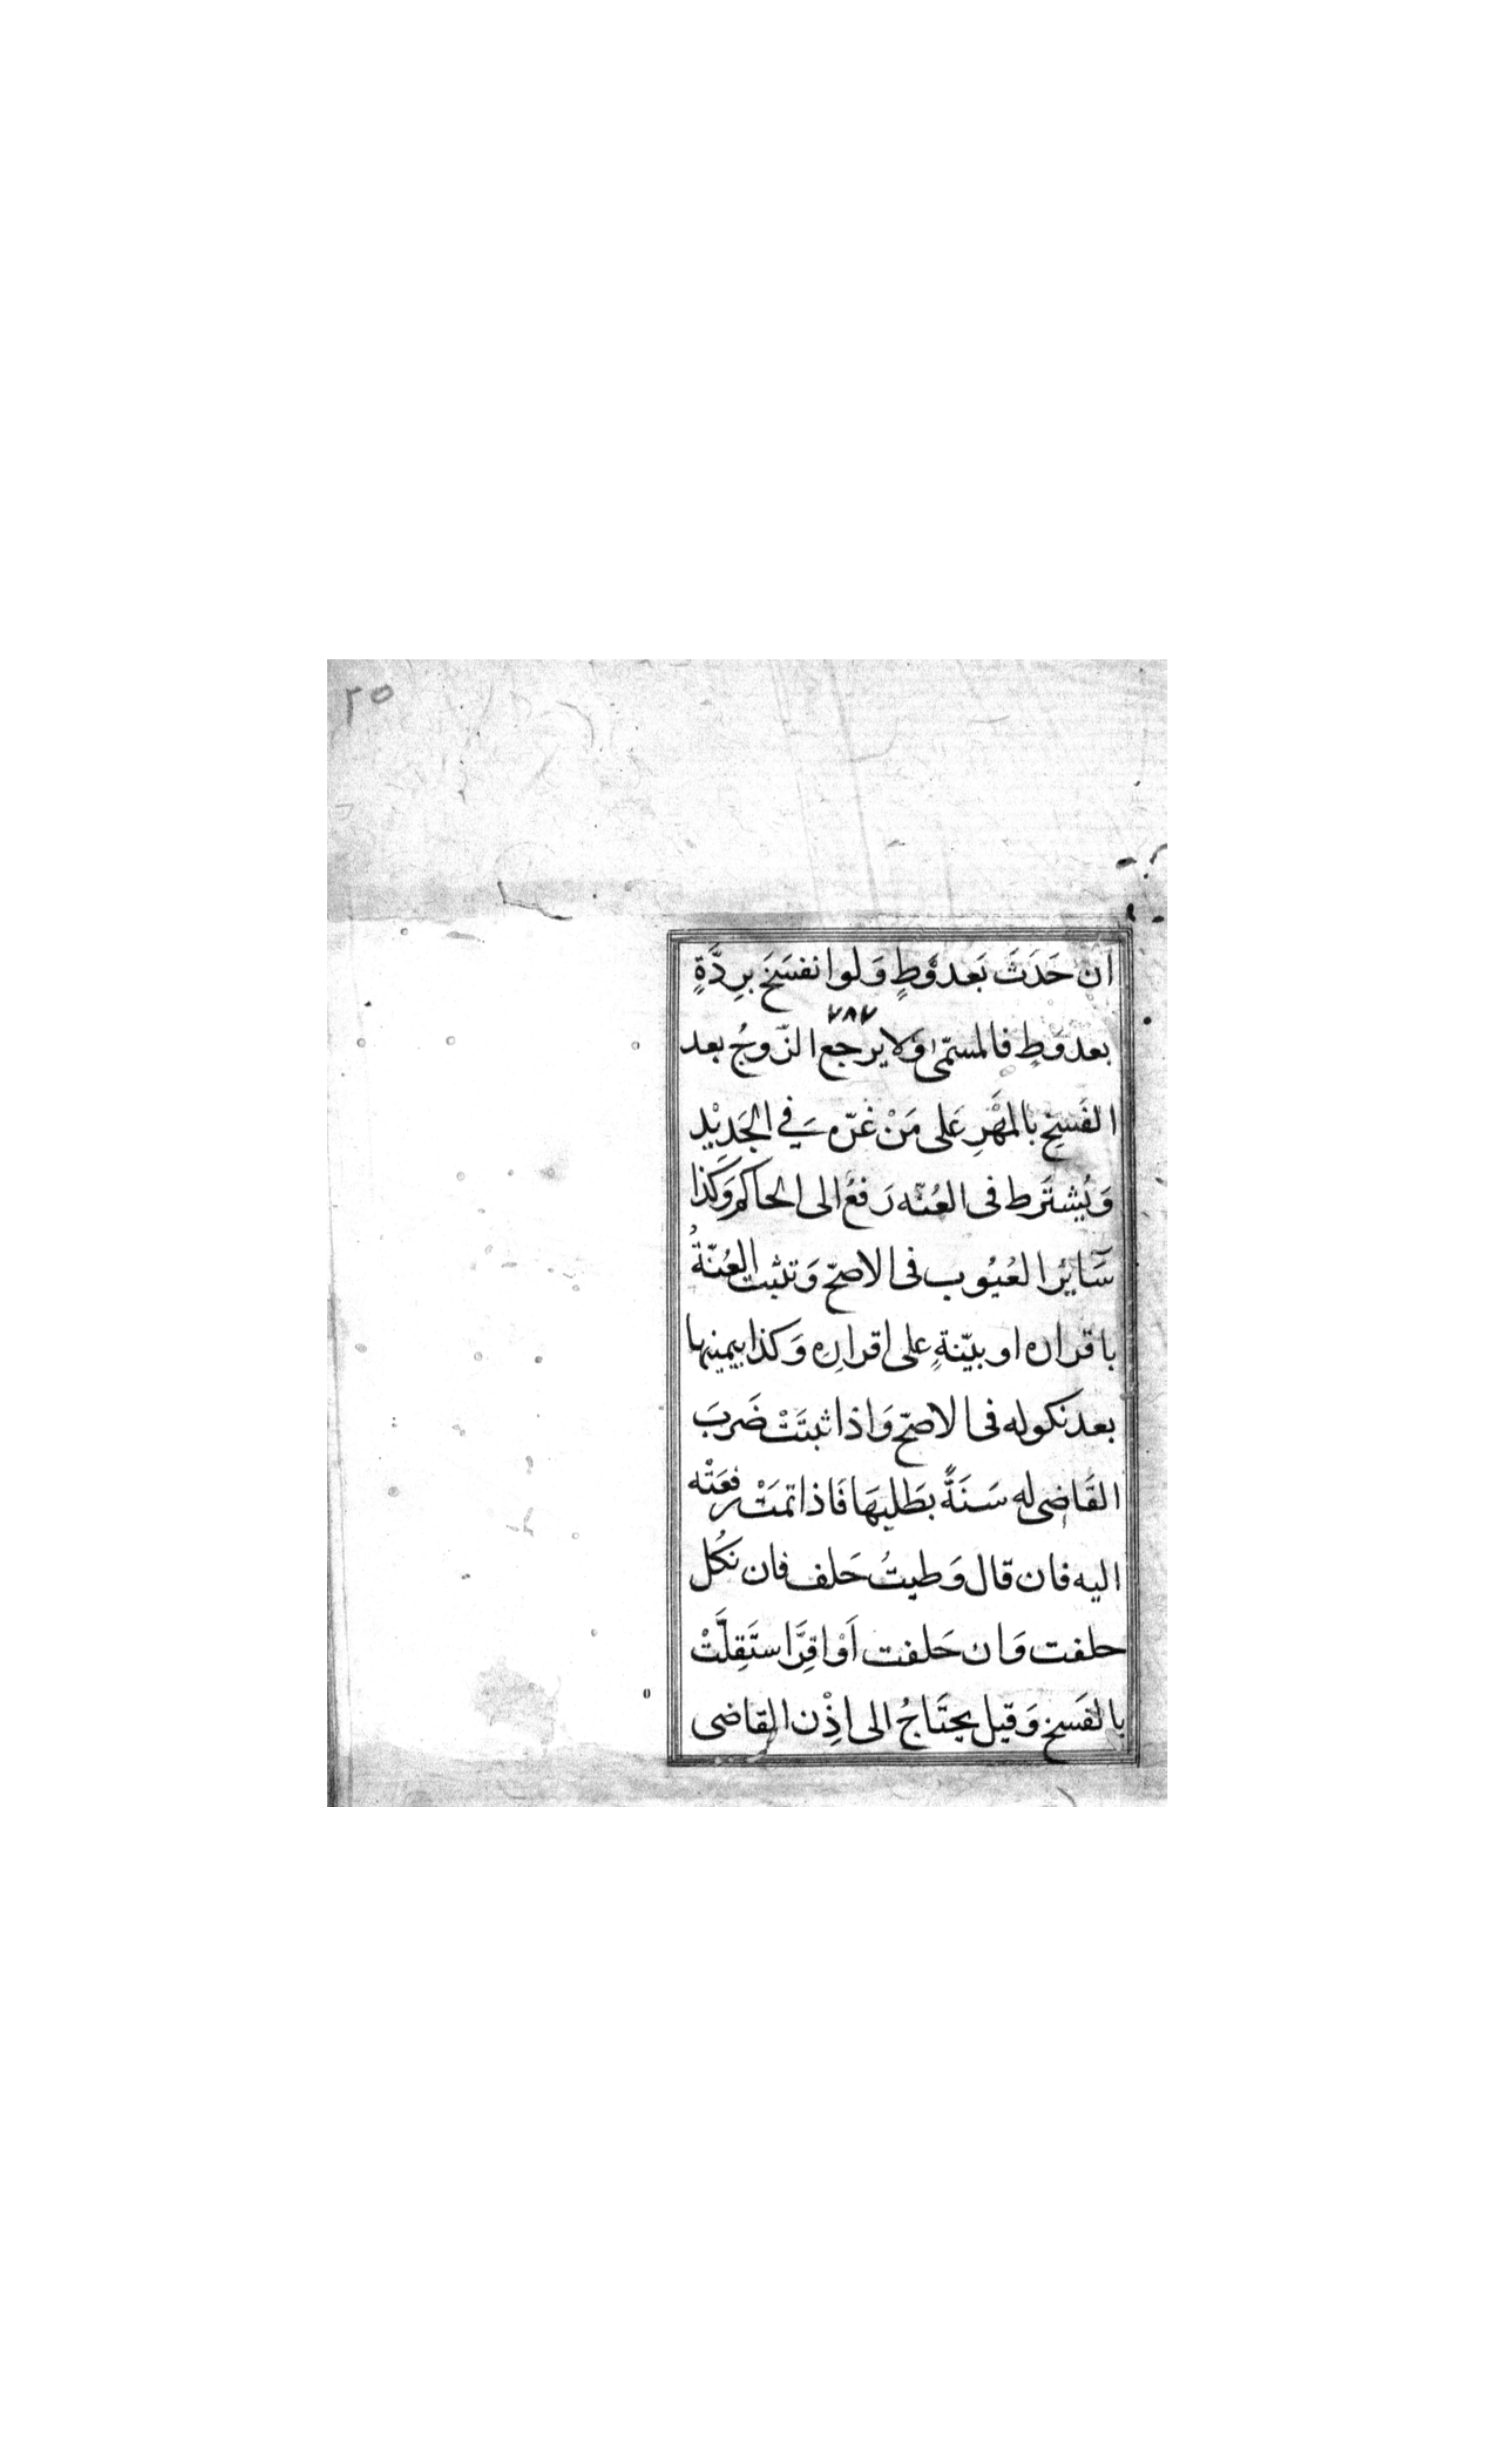 ٢٥
ان حَدَثَ بَعد وَطٍ وَلو انفسَخَ بِردَّةٍ
٧٨٧
بعد وَطٍ فالمسمّى وَلا يرجع الزّوجُ بعد
الفَسخِ بالمَهْرِ عَلى مَنْ غَرّه فِي الجَدِيْدِ
وَيُشتَرط فى العُنّه رَفعُ الى الحاكم وَكذا
سَايرُ العُيُوب فى الاصحّ وَتثبت العُنّةُ
باقراره او ببيّنةٍ على اقراره وَكذا بيمينها
بعد نكوله فى الاصحّ وَاذا ثبتَتْ ضَربَ
القَاضِى له سَنَةً بطَلبهَا فَاذا تمتْ رفعَتْه
اليه فان قال وَطيتُ حَلف فان نكَل
حلفت وَان حَلفت اَوْ اقِرَّ استَقلَّتْ
بالفَسخ وَقيل يحتَاجُ الى اذْن القاضى